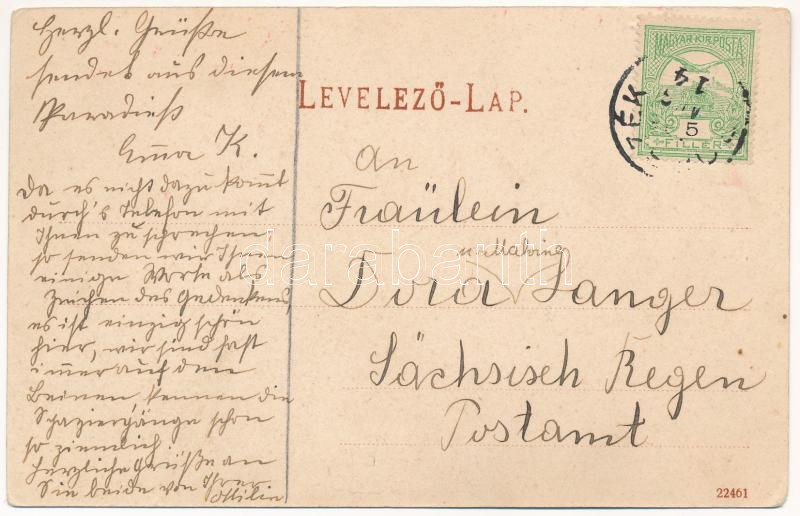 Herzl. Grüße
sendet aus diesem
Paradies
Emma K.
Da es nicht dazu kommt
durch's Telefon mit
Ihnen zu sprechen
so senden wir Ihnen
einige Worte als
Zeichen des Gedenkens,
es ist einzig schön
hier, wir sind fast
immer auf den
Beinen kennen die
Spaziergänge schon
so ziemlich
Herzliche Grüße an
Sie beide von Ihrer
Ottilie
LEVELEZŐ-LAP.
An
Fräulein
u.
Dora Langer
Sächsisch Regen
Postamt
MAGYAR KIR. POSTA
5
FILLER
14
darabanth
22461